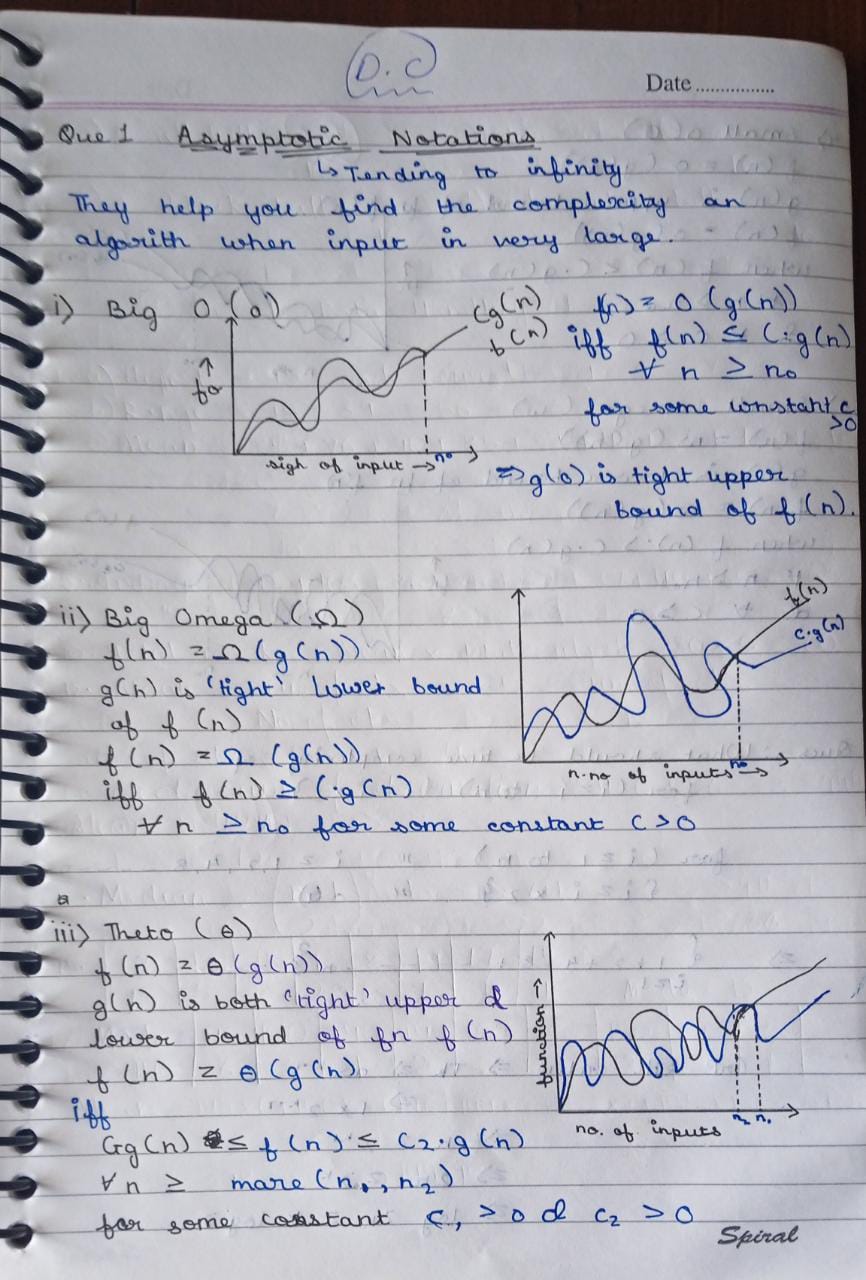 D.C
Date ................
Que 1 Asymptotic Notations
↳ Tending to infinity
They help you find the complexity an
algorith when input in very large.
i) Big O (O)
Cg(n)
f(n)
f(n) = O (g(n))
iff f(n) ≤ C·g(n)
∀ n ≥ n₀
for some constant c
>0
sigh of input → n₀
⇒ g(0) is tight upper
bound of f(n).
ii) Big Omega (Ω)
f(n) = Ω (g(n))
g(n) is 'tight' Lower bound
of f(n)
f(n) = Ω (g(n))
iff f(n) ≥ C·g(n)
∀ n ≥ n₀ for some constant C>0
f(n)
c·g(n)
n·no of inputs n₀ →
iii) Theto (θ)
f(n) = θ(g(n))
g(n) is both 'tight' upper &
lower bound of fn f(n)
f(n) = θ (g(n)
iff
C₁g(n) ≤ f(n) ≤ C₂·g(n)
∀ n ≥ mare (n₁, n₂)
for some constant c₁ >0 & c₂ >0
function →
no. of inputs n₂ n₁
Spiral